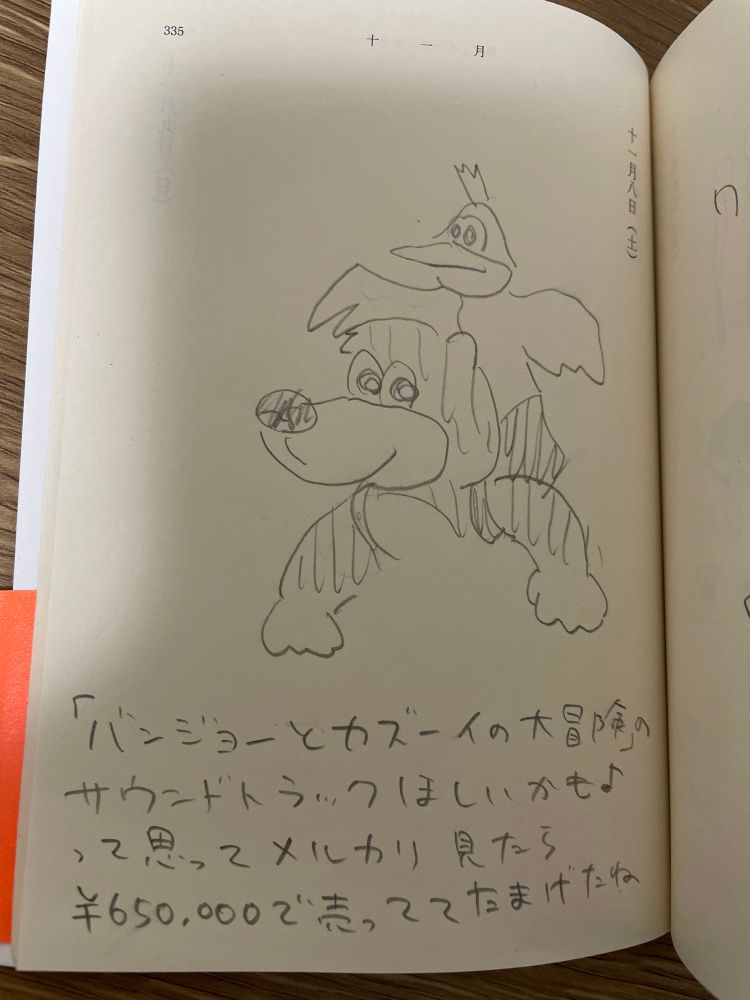 335
十一月
十一月八日(土)
「バンジョーとカズーイの大冒険」の
サウンドトラックほしいかも♪
って思ってメルカリ見たら
¥650,000で売っててたまげたね